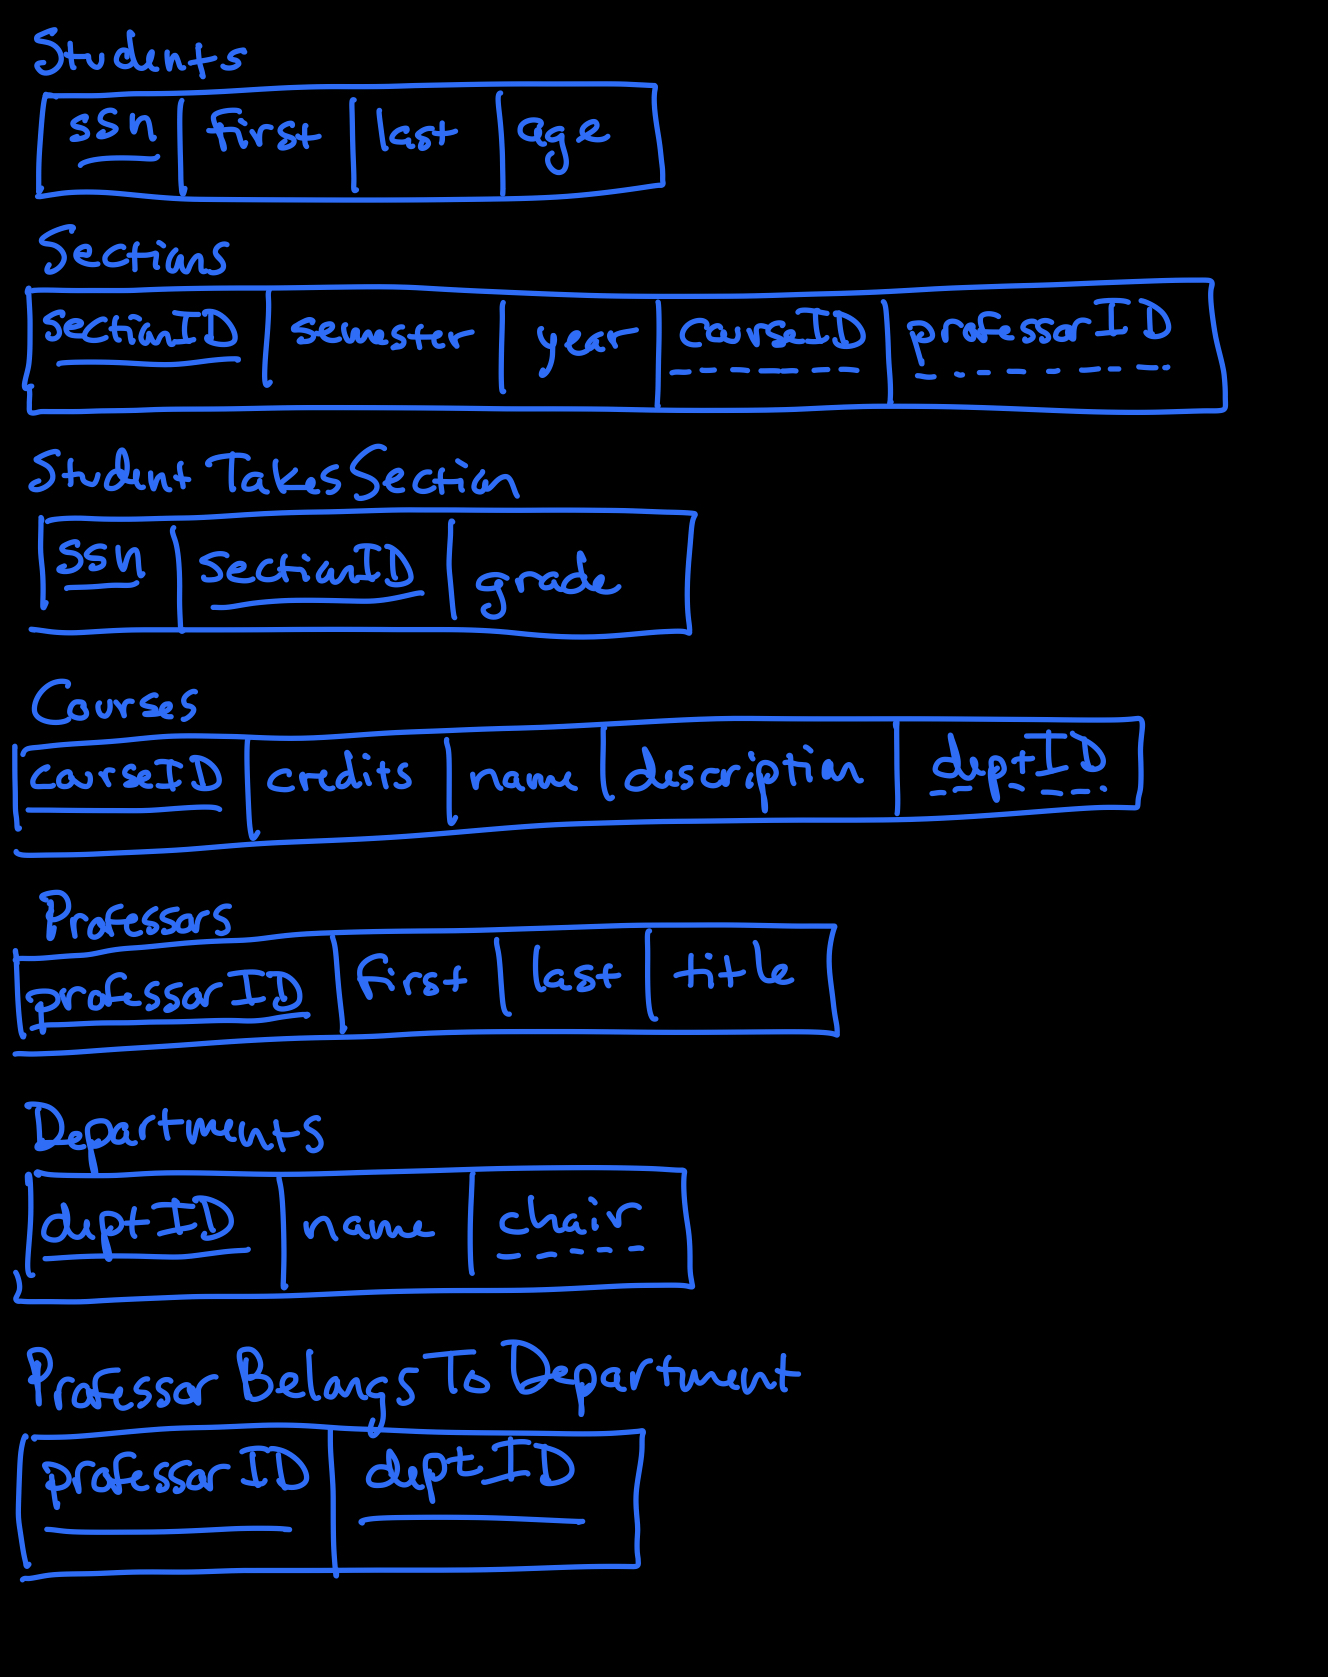 Students
ssn first last age
Sections
sectionID semester year courseID professorID
Student Takes Section
ssn sectionID grade
Courses
courseID credits name description deptID
Professors
professorID first last title
Departments
deptID name chair
Professor Belongs To Department
professor ID deptID